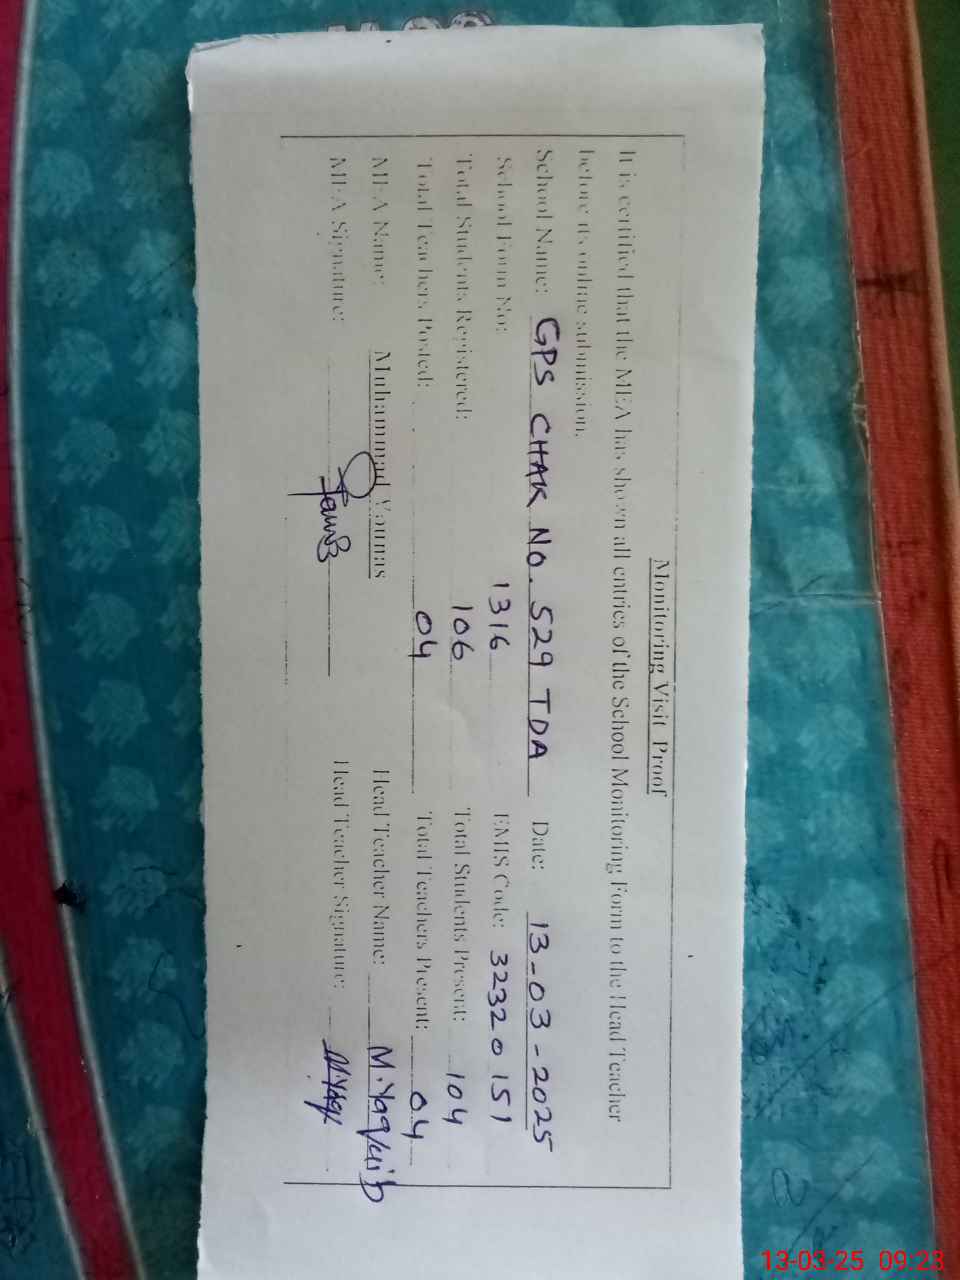 Monitoring Visit Proof
It is certified that the MEA has shown all entries of the School Monitoring Form to the Head Teacher
before its online submission.
School Name: GPS CHAK NO. 529 TDA Date: 13-03-2025
School Form No: 1316 EMIS Code: 32320151
Total Students Registered: 106 Total Students Present: 104
Total Teachers Posted: 04 Total Teachers Present: 04
MEA Name: Muhammad Younas Head Teacher Name: M. Yaqub
MEA Signature: Head Teacher Signature:
13-03-25 09:23